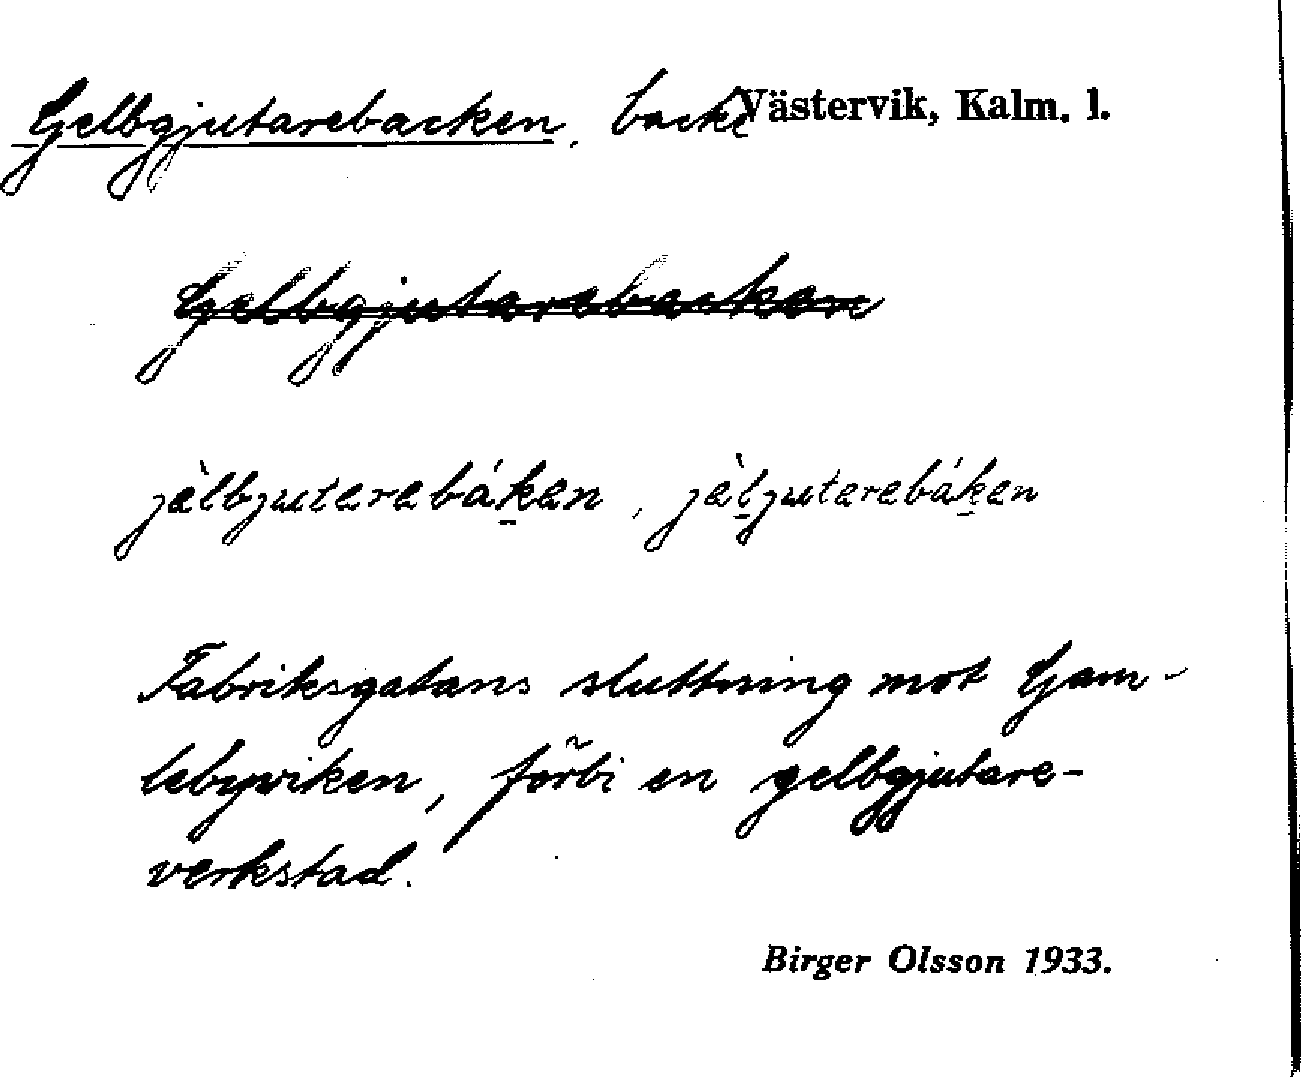 Gelbgjutarebacken, backe Västervik, Kalm. l.
Gelbgjutarebacken
jèlbjutarebáken, jèljutarebáken
Fabriksgatans sluttning mot Gam-
lebyviken, förbi en gelbgjutare-
verkstad.
Birger Olsson 1933.